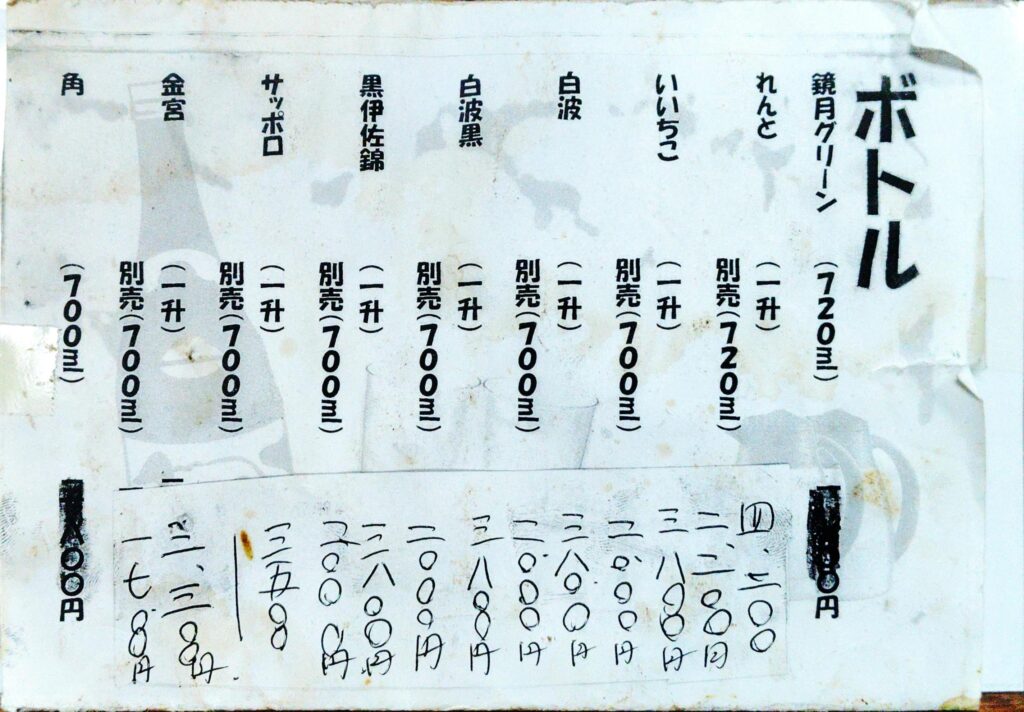 ボトル
鏡月グリーン (720㎖) 円
れんと (一升) 四、二〇〇
別売(720㎖) 二、二〇〇円
いいちこ (一升) 三八〇〇円
別売(700㎖) 二、〇〇〇円
白波 (一升) 三八〇〇円
別売(700㎖) 二〇〇〇円
白波黒 (一升) 三八〇〇円
別売(700㎖) 二〇〇〇円
黒伊佐錦 (一升) 三八〇〇円
別売(700㎖) 二〇〇〇円
サッポロ (一升) 三五〇〇
別売(700㎖)
金宮 (一升) 三、三〇〇円
別売(700㎖) 一七〇〇円
角 (700㎖) 〇〇円